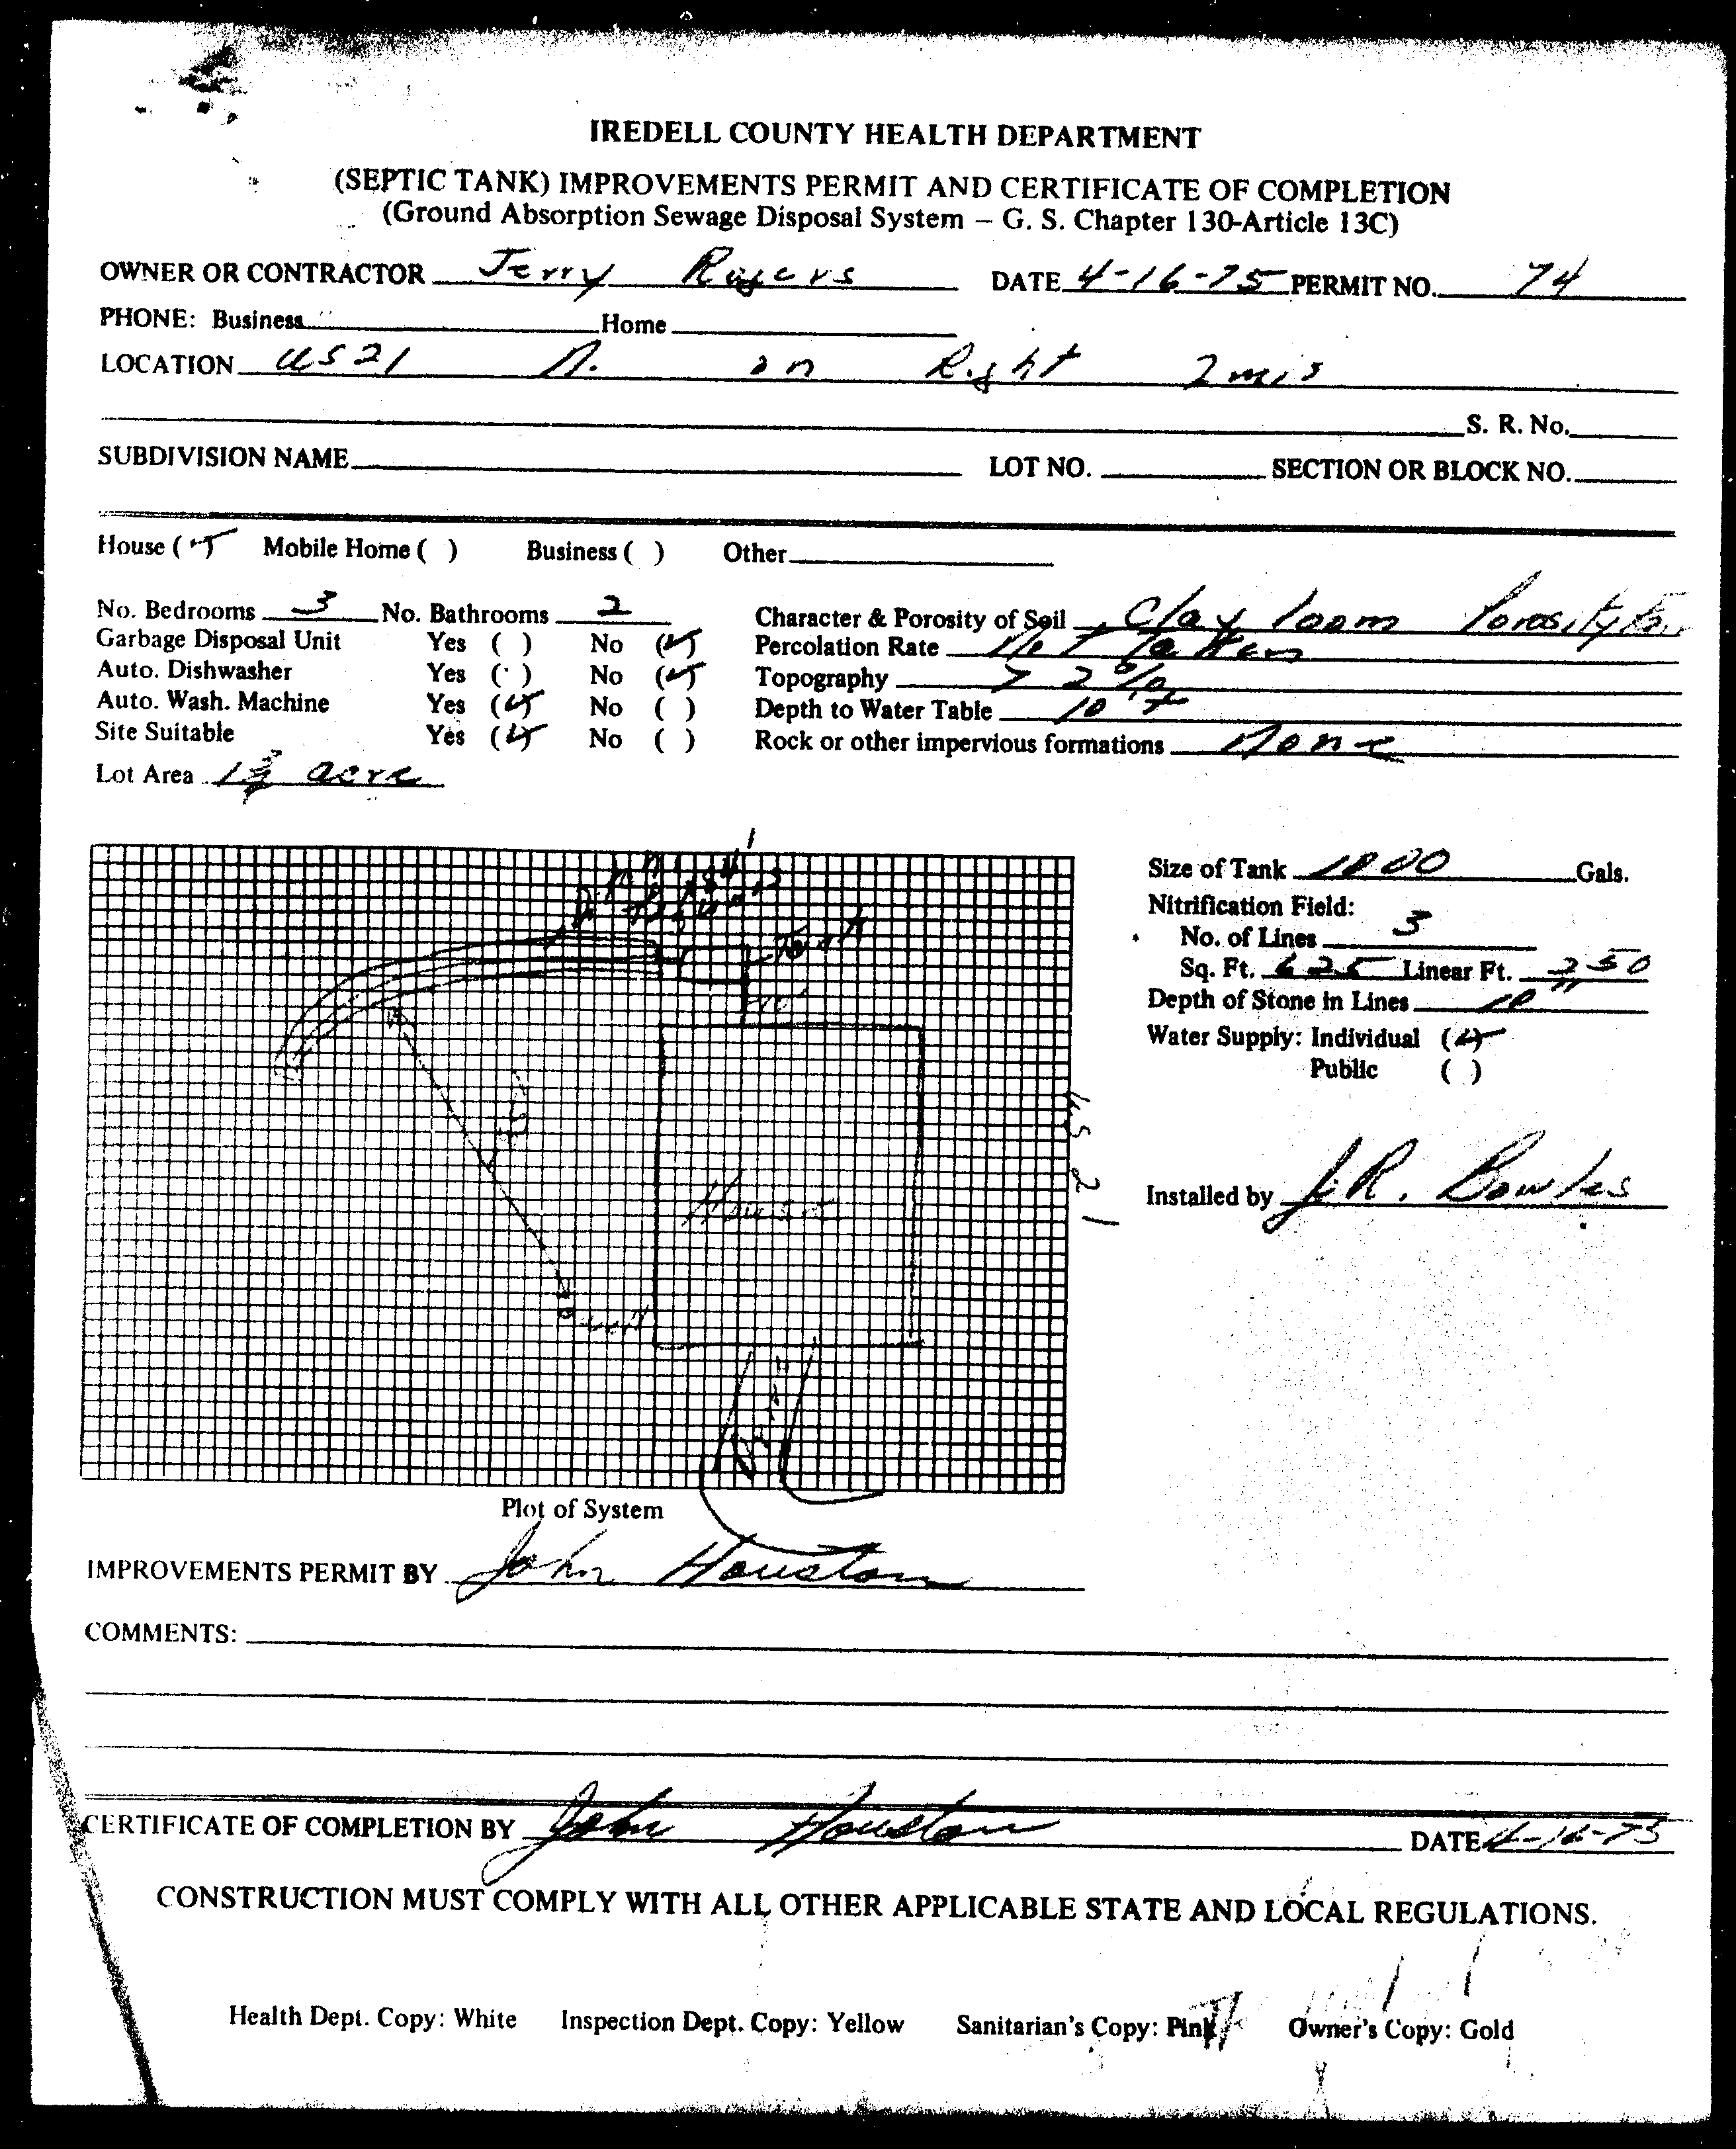 IREDELL COUNTY HEALTH DEPARTMENT
(SEPTIC TANK) IMPROVEMENTS PERMIT AND CERTIFICATE OF COMPLETION
(Ground Absorption Sewage Disposal System – G. S. Chapter 130-Article 13C)
OWNER OR CONTRACTOR Jerry Rogers DATE 4-16-75 PERMIT NO. 74
PHONE: Business Home
LOCATION US21 N. on Right 2mis
S. R. No.
SUBDIVISION NAME LOT NO. SECTION OR BLOCK NO.
House (✓) Mobile Home ( ) Business ( ) Other
No. Bedrooms 3 No. Bathrooms 2 Character & Porosity of Soil Clay loam Porosity
Garbage Disposal Unit Yes ( ) No (✓) Percolation Rate Not Taken
Auto. Dishwasher Yes ( ) No (✓) Topography > 2%
Auto. Wash. Machine Yes (✓) No ( ) Depth to Water Table 10'+
Site Suitable Yes (✓) No ( ) Rock or other impervious formations None
Lot Area acre
Size of Tank 1000 Gals.
Nitrification Field:
No. of Lines 3
Sq. Ft. 625 Linear Ft. 250
Depth of Stone in Lines 10"
Water Supply: Individual (✓)
Public ( )
Tank
US 21
House
well
Installed by J.R. Bowles
Plot of System
IMPROVEMENTS PERMIT BY John Houston
COMMENTS:
CERTIFICATE OF COMPLETION BY John Houston DATE 4-16-75
CONSTRUCTION MUST COMPLY WITH ALL OTHER APPLICABLE STATE AND LOCAL REGULATIONS.
Health Dept. Copy: White Inspection Dept. Copy: Yellow Sanitarian's Copy: Pink Owner's Copy: Gold